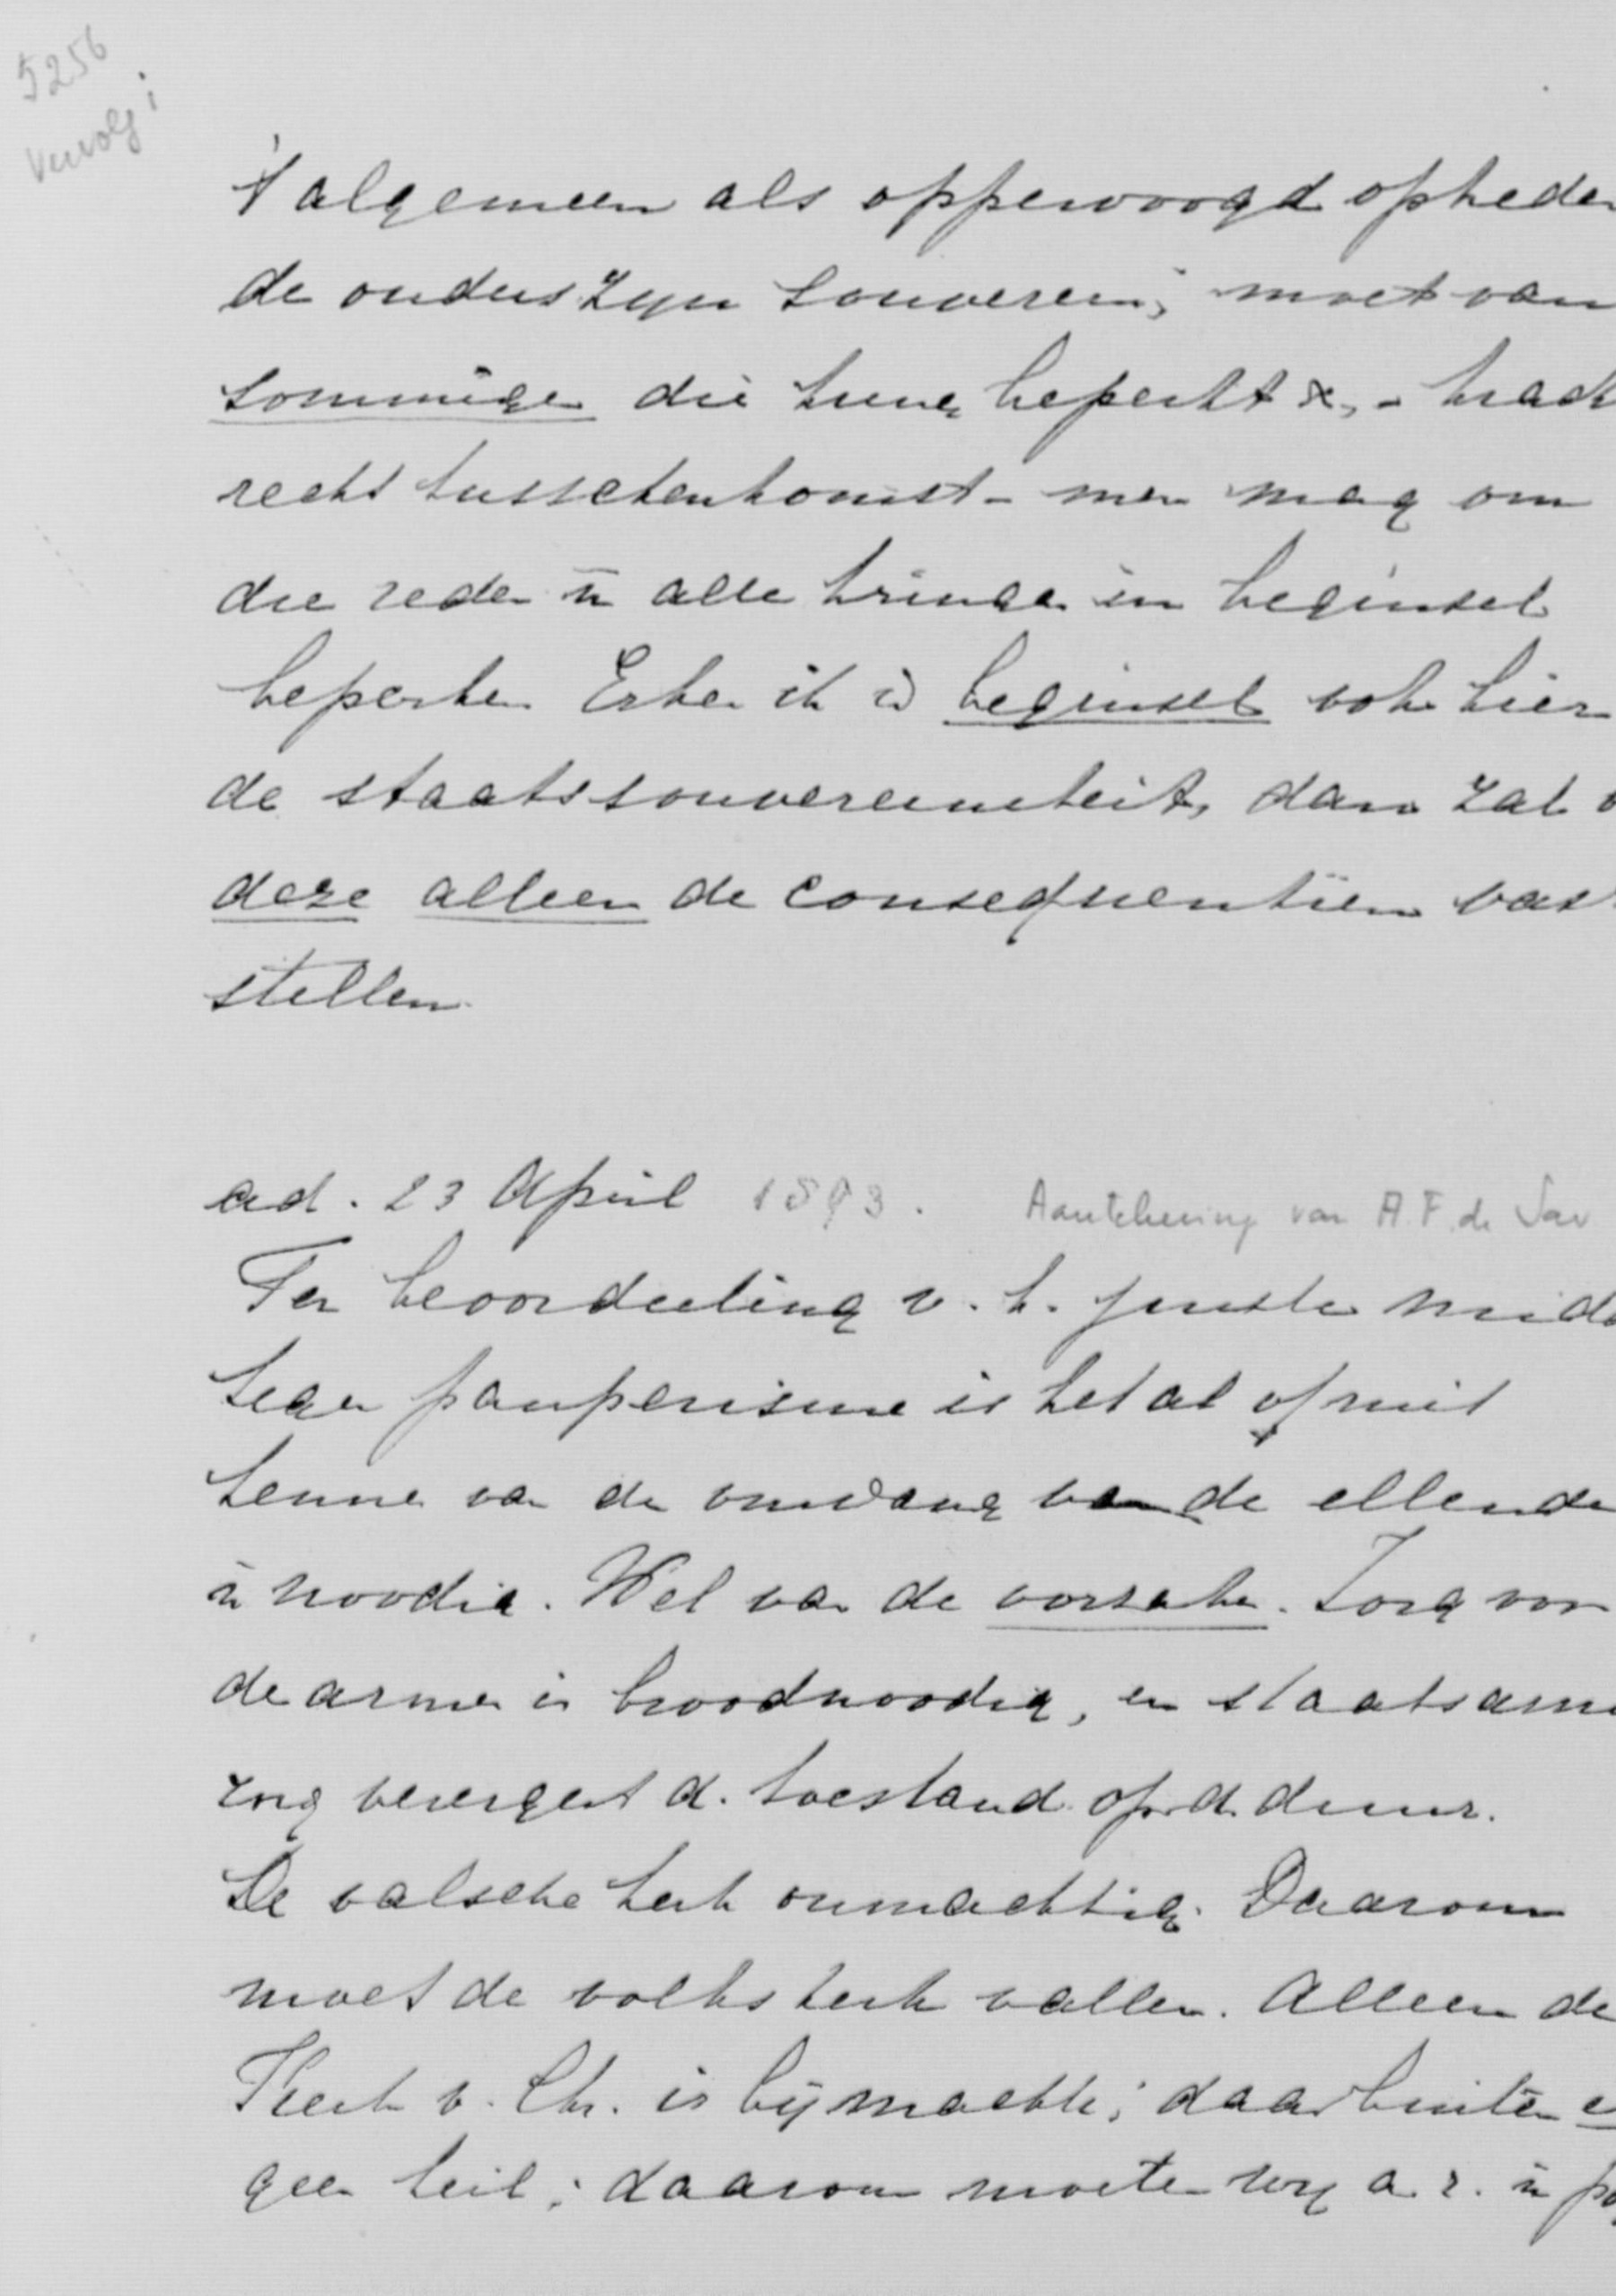 5256
Vervolg i
't algemeen als oppervoogd optreden
de ouders zyn souverein; moet van
sommige die kring beperkt
recht tusschenkomst - men mag om
die reden n alle kringen in beginsel
beperken Erken ik i/ beginsel ook hier
de staatssouvereiniteit, dan zal
deze alleen de consequentiën vast
stellen.
ad. 23 April 1893. Aantekening van A. F. de Sav
Ter beoordeeling v. h. juiste midd
tegen pauperisme is het al of niet
kennen van de omvang van de ellende
n noodig. Wel van de oorzaken. Zorg voor
de armen is broodnoodig, en staatsarm
zorg verergert d. toestand op d. duur.
De valsche kerk onmachtig. Daarom
moet de volkskerk vallen. Alleen de
Kerk v. Chr. is bij machte; daarbuiten
geen heil; daarom moeten wy a. r. n